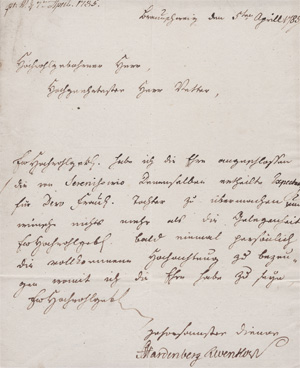 Braunschweig den 5ten Aprill 1785
Hochwohlgebohrner Herr,
Hochgeehrtester Herr Vetter,
Ew Hochwohlgeb. habe ich die Ehre angeschlossen
die von ertheilte
für Dero Tochter zu übermachen
wünsche nichts mehr als die Gelegenheit
Ew Hochwohlgeb. bald einmal persönlich
die vollkommene Hochachtung zu bezeu-
gen womit ich die Ehre habe zu seyn
Ew Hochwohlgeb.
gehorsamster Diener
Hardenberg Reventlow